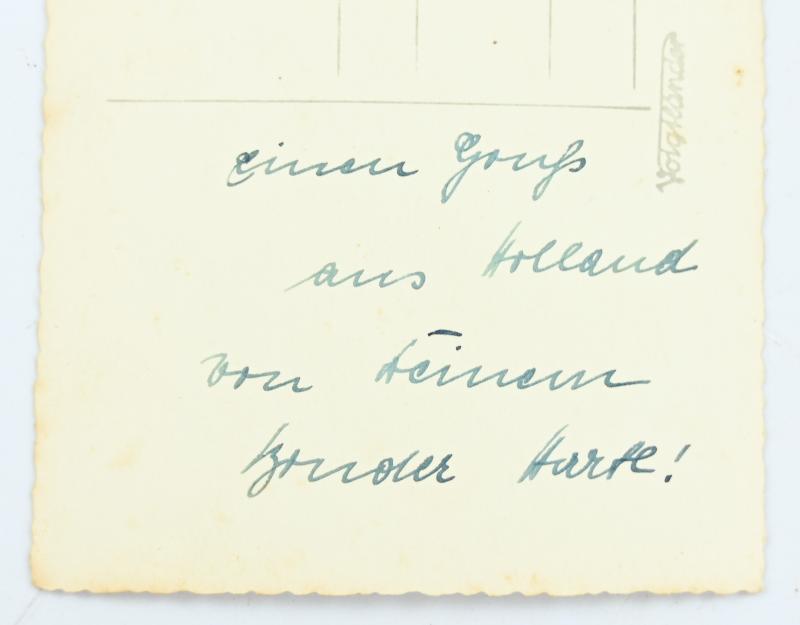 einen Gruß
aus Holland
von Deinem
Bruder
Voigtländer